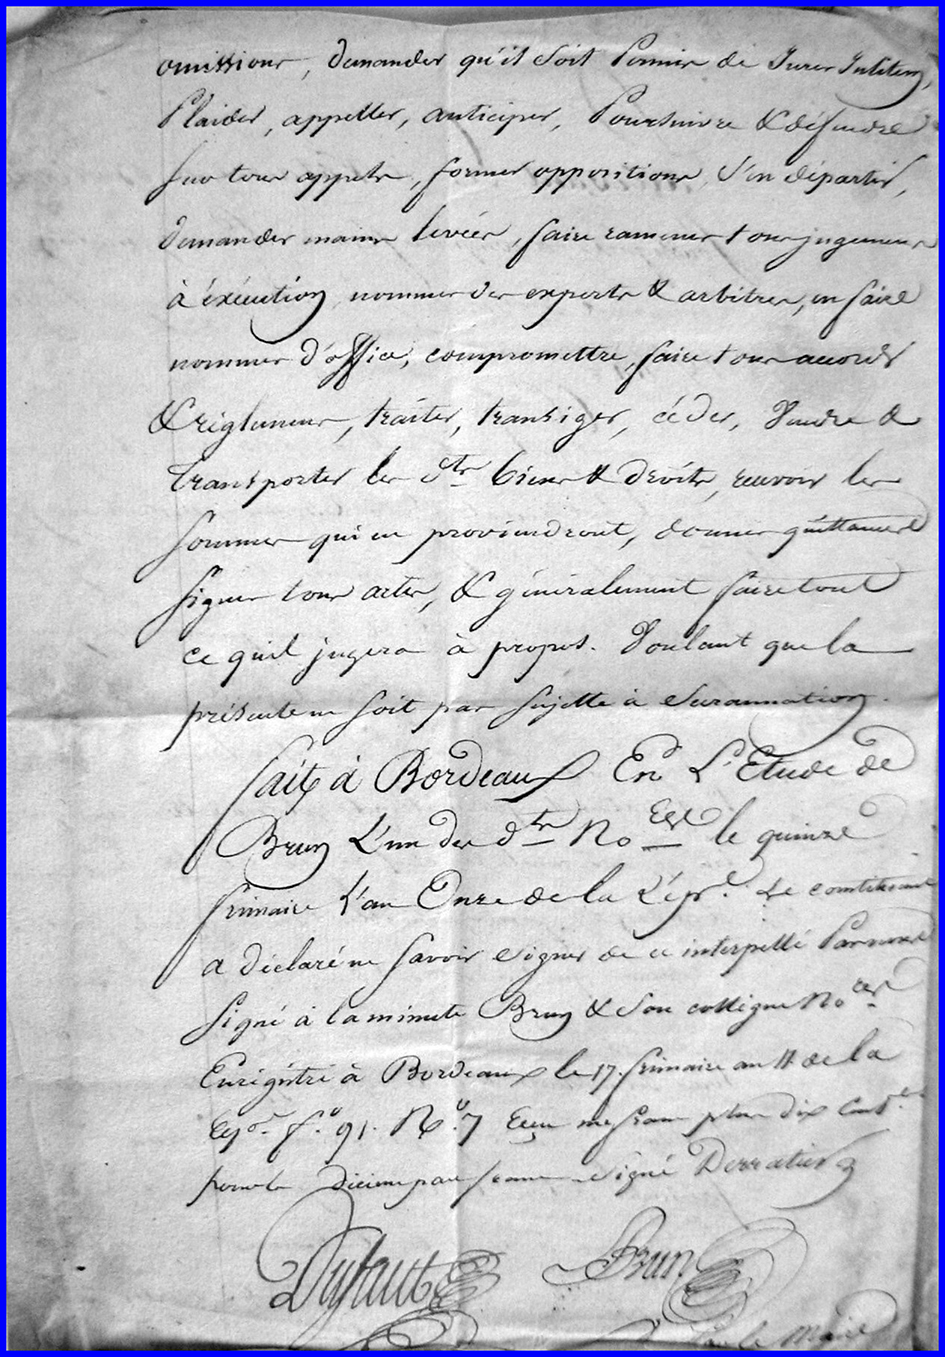 omissions, demander qu'il soit Permis de Jurer
Plaider, appeller, anticiper, Poursuivre & deffendre
sur tous appels, former oppositions, s'en départir,
demander mains levées, faire ramener tous jugemens
à éxécution, nommer des experts & arbitres, en faire
nommer d'office, compromettre, faire tous accords
& réglemens, traiter, transiger, céder, Vendre &
transporter les dts biens & droits, recevoir les
sommes qui en proviendront, donner quittances
signer tous actes, & généralement faire tout
ce quil jugera à propos. Voulant que la
présente ne soit pas sujette à surannation.
fait à Bordeaux En L'Etude de
Brun L'un des dts Nores le quinze
frimaire L'an Onze de la Répe. Le constituant
a déclaré ne savoir signer de ce interpellé
signé à la minute Brun & Son collègue Nores
Enrégistré à Bordeaux le 17. frimaire an 11 de la
Repe. fo. 91. Ro. 7 Reçu un franc plus dix Cent.
pour le décime par franc signé
Dufaut Brun
le Maire